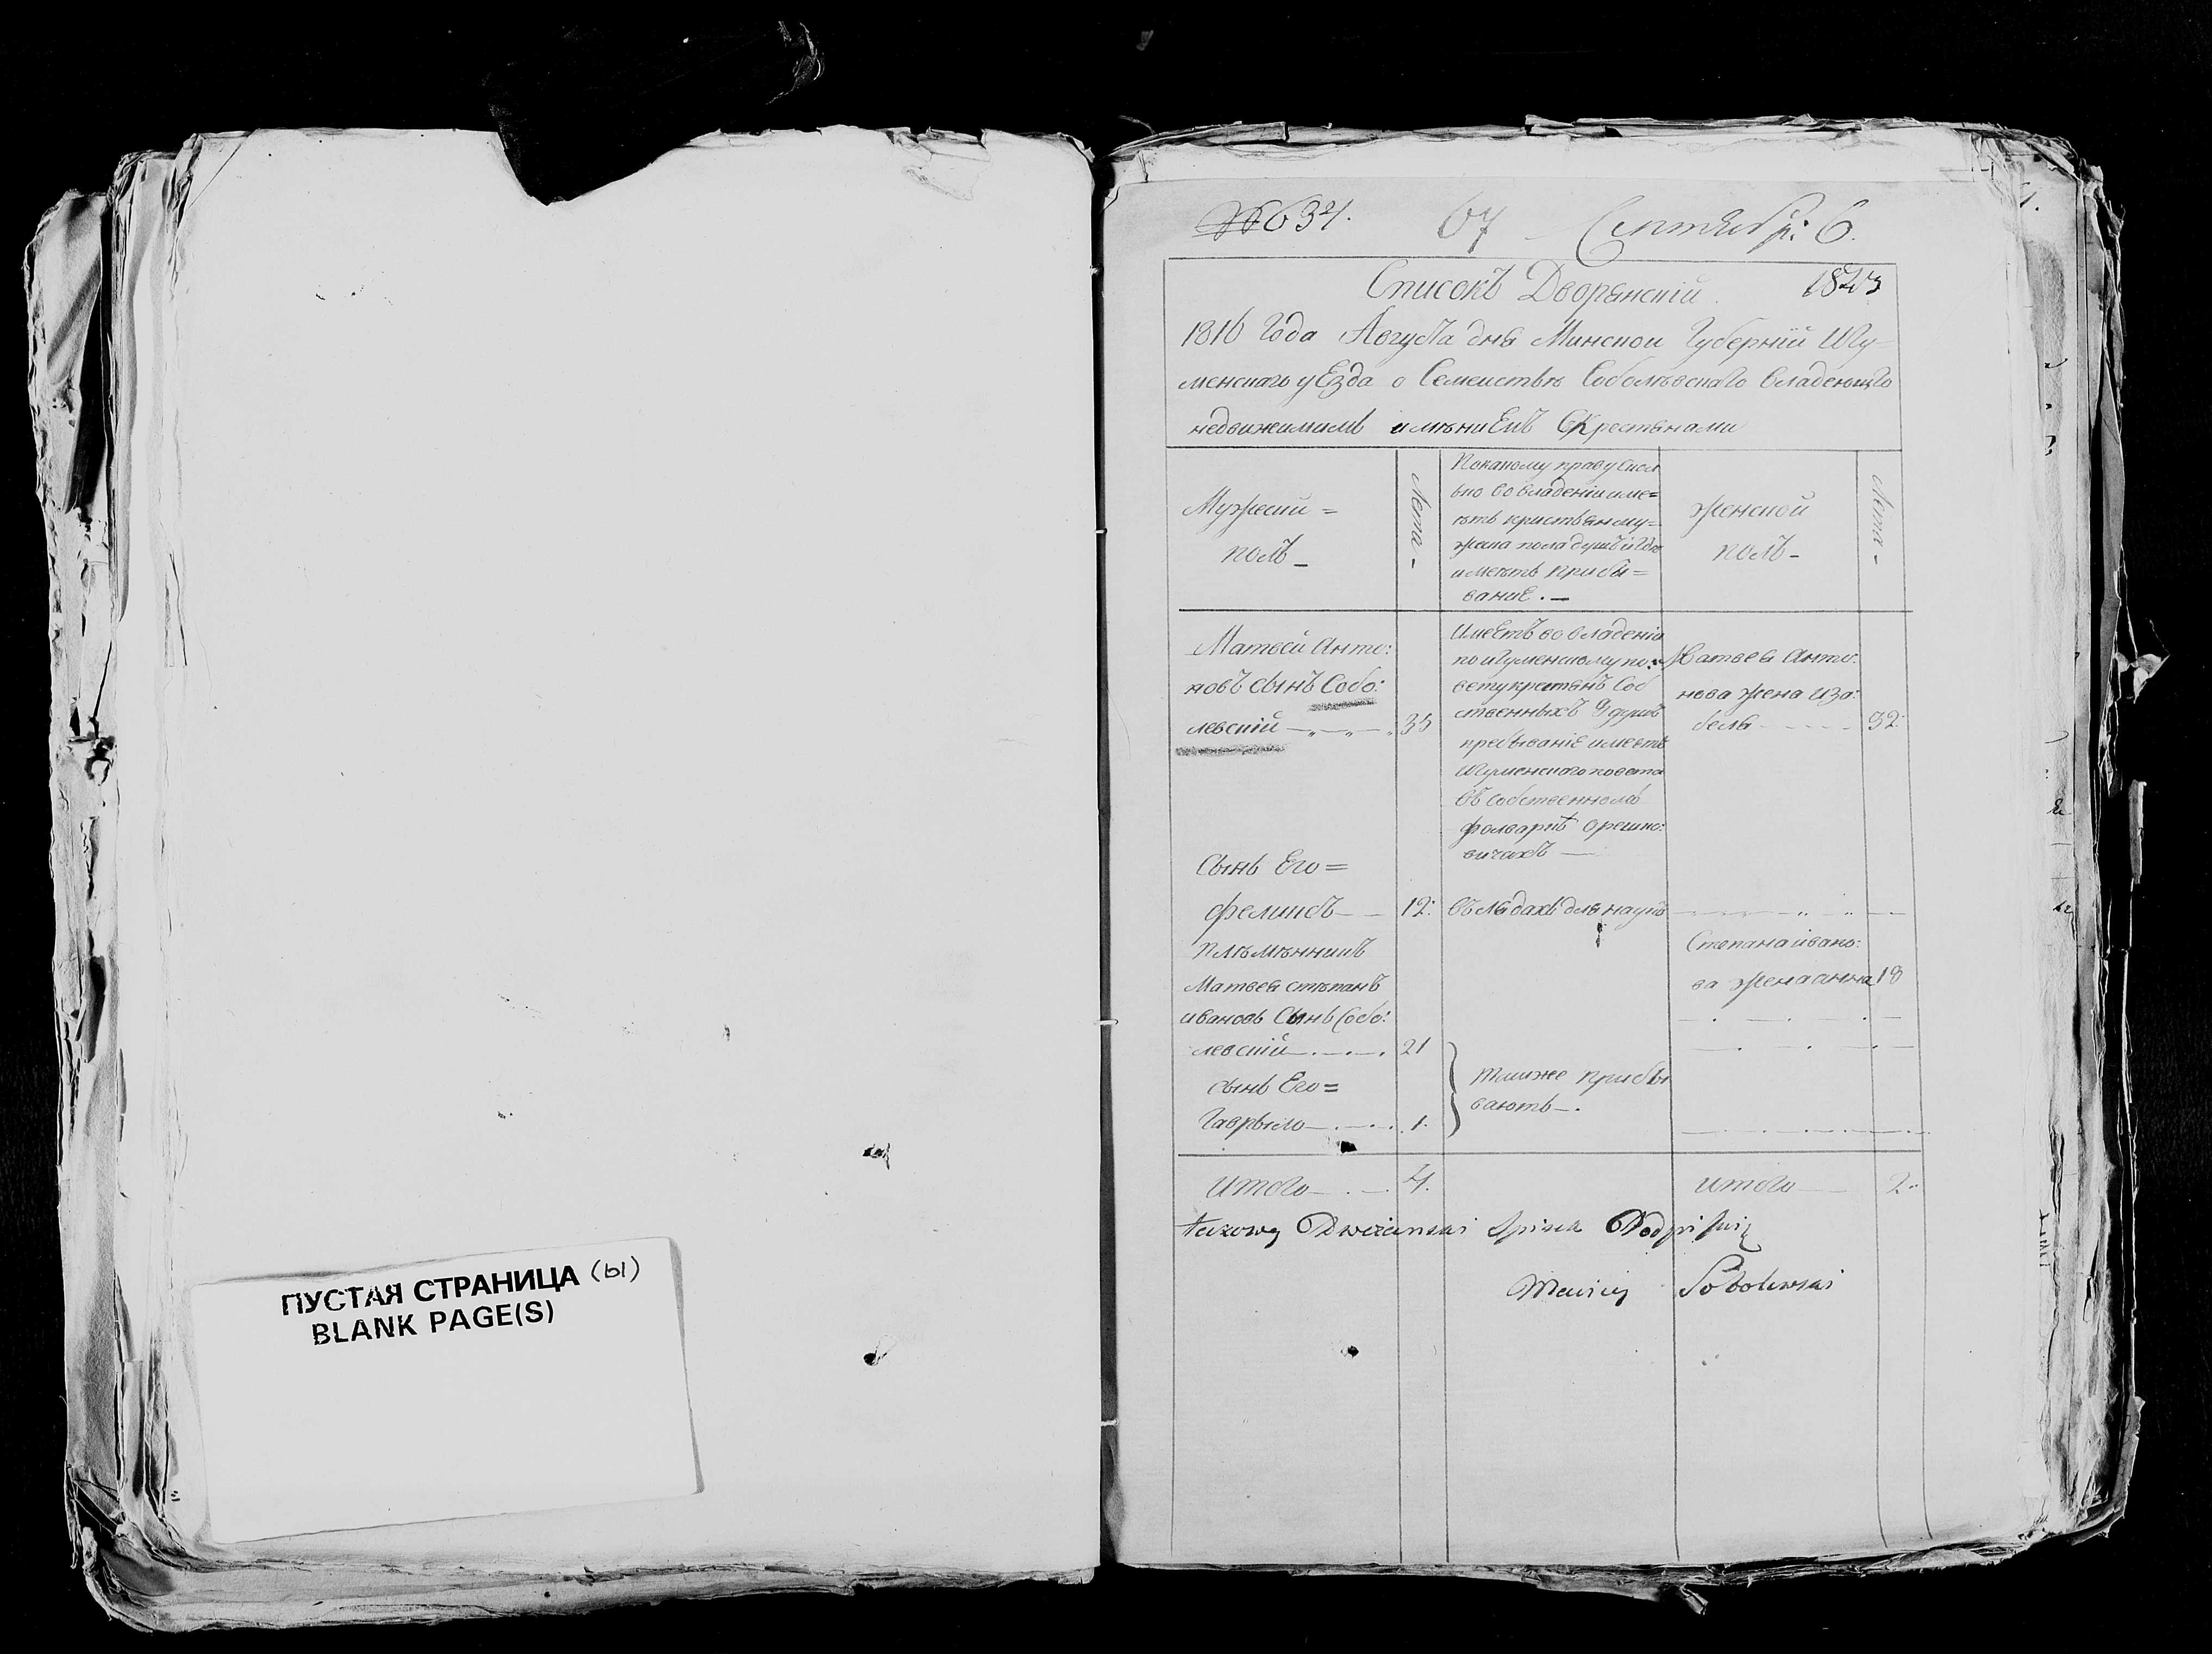 ПУСТАЯ СТРАНИЦА (ы)
BLANK PAGE(S)
№ 634. 67 Сентябр: 6.
Списокъ Дворянскій
1816 Года Августа дня Минской Губерніи Игу-
менскаго уЕзда о Семействѣ Соболѣвскаго Владеющаго
недвижимимъ имѣниЕмъ СКрестьянами
Мужескій =
полъ –
Лета -
По какому праву Скол
ько во владеніи име=
етъ кристьян му=
жеска пола душъ и Где
имѣетъ приби=
ваниЕ. –
женской
полъ –
Лета -
Матвей Анто:
новъ сынъ Собо:
левскій
35
ИмеЕтъ во владеніи
по Игуменскому по:
вету крестьянъ Соб
ственныхъ 9 душъ
пребываніЕ имеетъ
Игуменскаго повета
Въ собственномъ
фолваркѣ Орешко:
вичахъ —
Матвея Анто:
нова жена Иза:
беля
32:
Сынъ Его =
Феликсъ
12:
для наукъ
Плѣмѣнникъ
Матвея стѣпанъ
ивановъ Сынъ Собо:
левскій
21
Степана ивано:
ва жена анна 18
сынъ Его =
Гаврыло
1.
также прибы
вають –.
Итого
4.
итого
2.
takowy Dworianski Spisek Podpisuię
Maciey Sobolewski